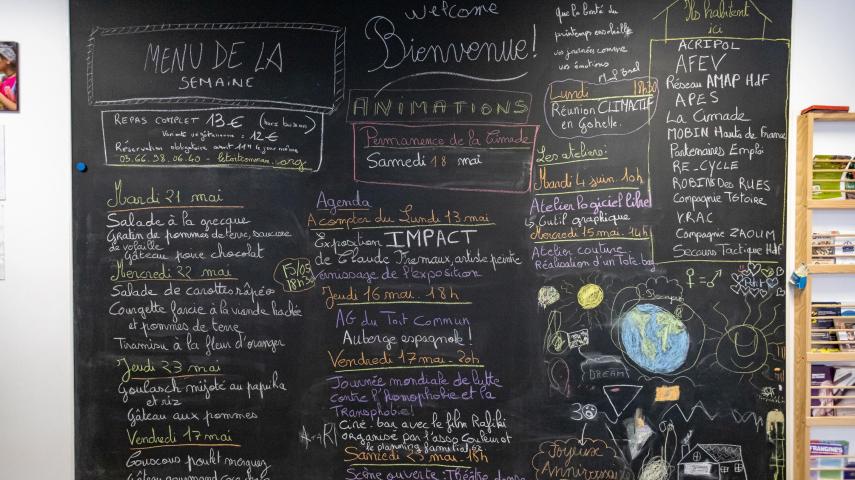 MENU DE LA
SEMAINE
REPAS COMPLET 13€ (hors boissons)
Variante végétarienne = 12€
Réservation obligatoire avant 11H le jour même
03.66.98.06.40 - letoitcommun.ong
Mardi 21 mai
Salade à la grecque
Gratin de pommes de terre, saucisse
de volaille
Gâteau poire chocolat
Mercredi 22 mai
Salade de carottes râpées
Courgette farcie à la viande hachée
et pommes de terre
Tiramisu à la fleur d'oranger
Jeudi 23 mai
Goulasch mijoté au paprika
et riz
Gâteau aux pommes
Vendredi 17 mai
Couscous poulet merguez
Gâteau gourmand
welcome
Bienvenue!
ANIMATIONS
Permanence de la Cimade
Samedi 18 mai
Agenda
A compter du Lundi 13 mai
Exposition IMPACT
de Claude Tremaux, artiste peintre
vernissage de l'exposition
15/05
18h30
Jeudi 16 mai. 18h
AG du Toit Commun
Auberge espagnole!
Vendredi 17 mai. 20h
Journée mondiale de lutte
contre l'homophobie et la
Transphobie!
Ciné. bar avec le film Rafiki
organisé par l'asso Couleur et
le planning familial 62
Samedi 25 mai. 18h
Scène ouverte: Théâtre
Que la bonté du
printemps ensoleille
vos journées comme
vos émotions
Lundi 18h30
Réunion CLIMACTIF
en gohelle.
Les ateliers:
Mardi 4 juin. 10h
Atelier logiciel libre
↳ Outil graphique
Mercredi 15 mai. 14h
Atelier couture
Réalisation d'un Tote.bag
Ils habitent
ici
ACRIPOL
AFEV
Réseau AMAP HdF
APES
La Cimade
MOBIN Hauts de France
Partenaires Emploi
RE_CYCLE
ROBINS DES RUES
Compagnie TGtoire
VRAC
Compagnie ZAOUM
Secours Tactique HdF
♀=♂
DREAM
Joyeux
Anniversaire